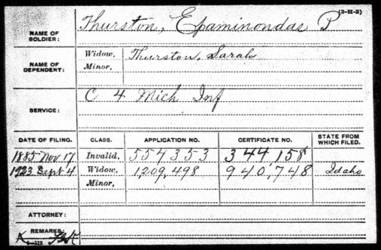 (3-111-2)
NAME OF SOLDIER: Thurston, Epaminondas P
NAME OF DEPENDENT: Widow, Thurston, Sarah
Minor,
SERVICE: C 4 Mich Inf
DATE OF FILING. CLASS. APPLICATION NO. CERTIFICATE NO. STATE FROM WHICH FILED.
1885 Nov 17 Invalid, 554353 344158
1923 Sept 4 Widow, 1209,498 940,748 Idaho
Minor,
ATTORNEY:
REMARKS: